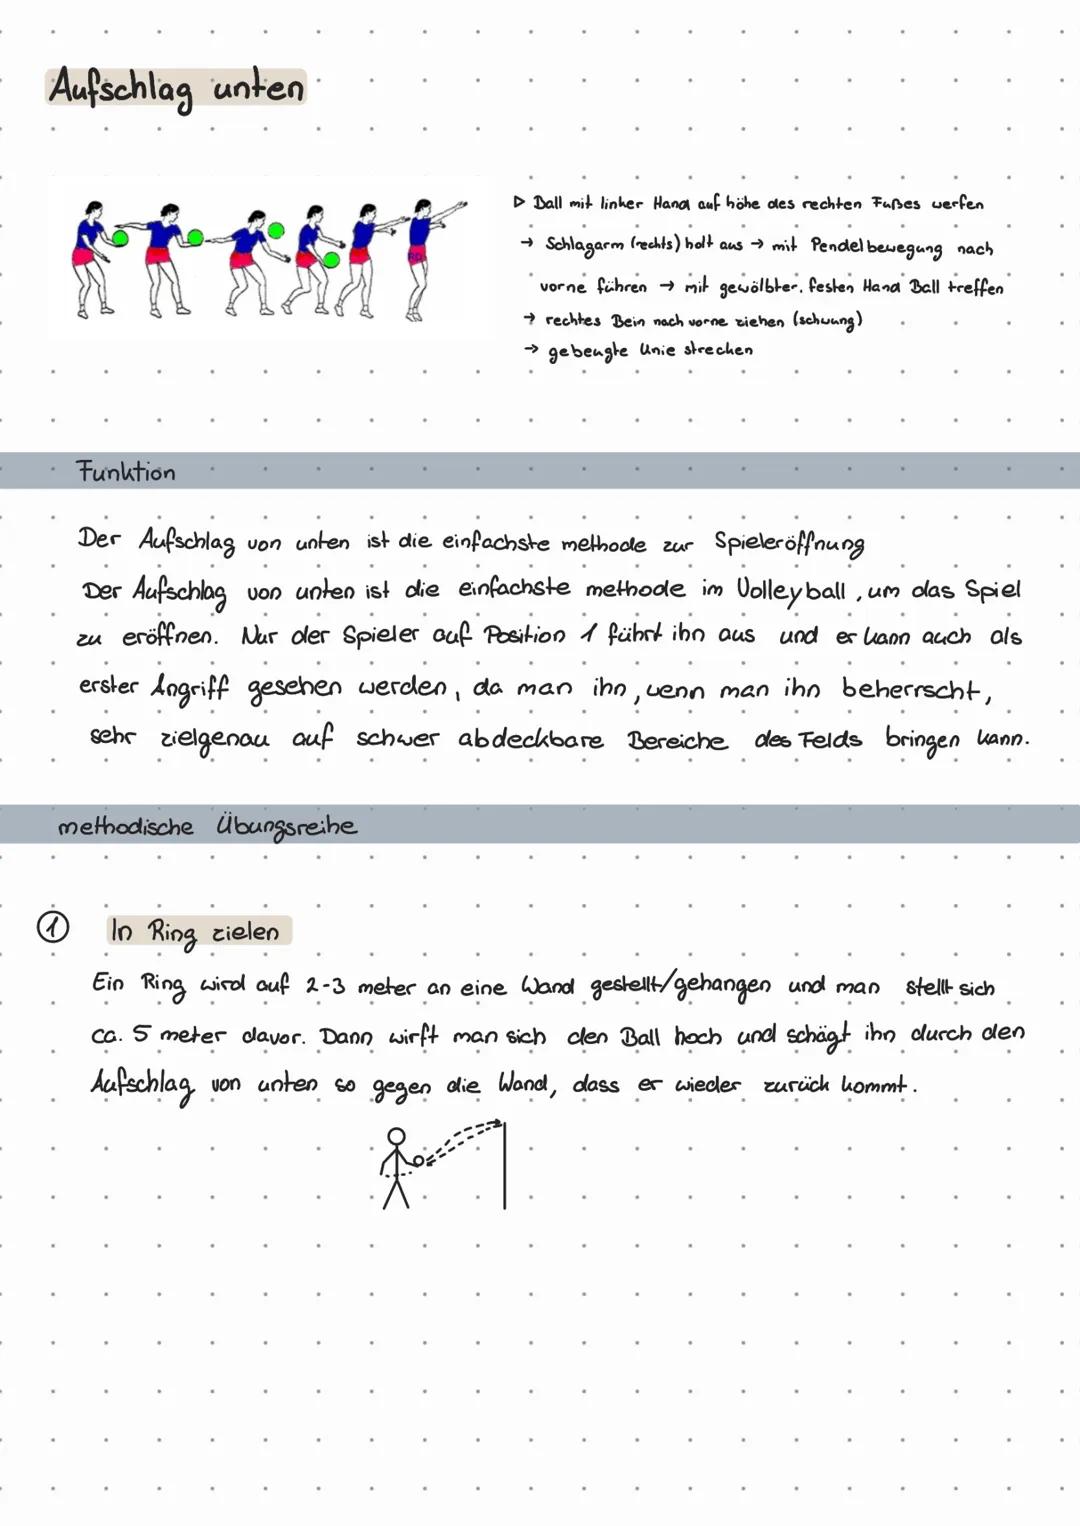 Aufschlag unten
▷ Ball mit linker Hand auf höhe des rechten Fußes werfen
→ Schlagarm (rechts) holt aus → mit Pendelbewegung nach
vorne führen → mit gewölbter, festen Hand Ball treffen
→ rechtes Bein nach vorne ziehen (schwung)
→ gebeugte Knie strecken
Funktion
Der Aufschlag von unten ist die einfachste methode zur Spieleröffnung
Der Aufschlag von unten ist die einfachste methode im Volleyball, um das Spiel
zu eröffnen. Nur der Spieler auf Position 1 führt ihn aus und er kann auch als
erster Angriff gesehen werden, da man ihn, wenn man ihn beherrscht,
sehr zielgenau auf schwer abdeckbare Bereiche des Felds bringen kann.
methodische Übungsreihe
1 In Ring zielen
Ein Ring wird auf 2-3 meter an eine Wand gestellt/gehangen und man stellt sich
ca. 5 meter davor. Dann wirft man sich den Ball hoch und schägt ihn durch den
Aufschlag von unten so gegen die Wand, dass er wieder zurück kommt.